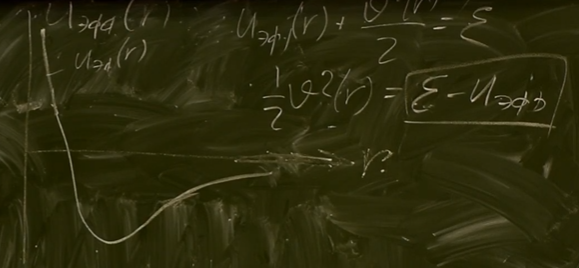 Uэфф(r)
Uэф(r)
Uэф(r) + v²(r)/2 = ε
1/2 v²(r) = ε - Uэфф
r